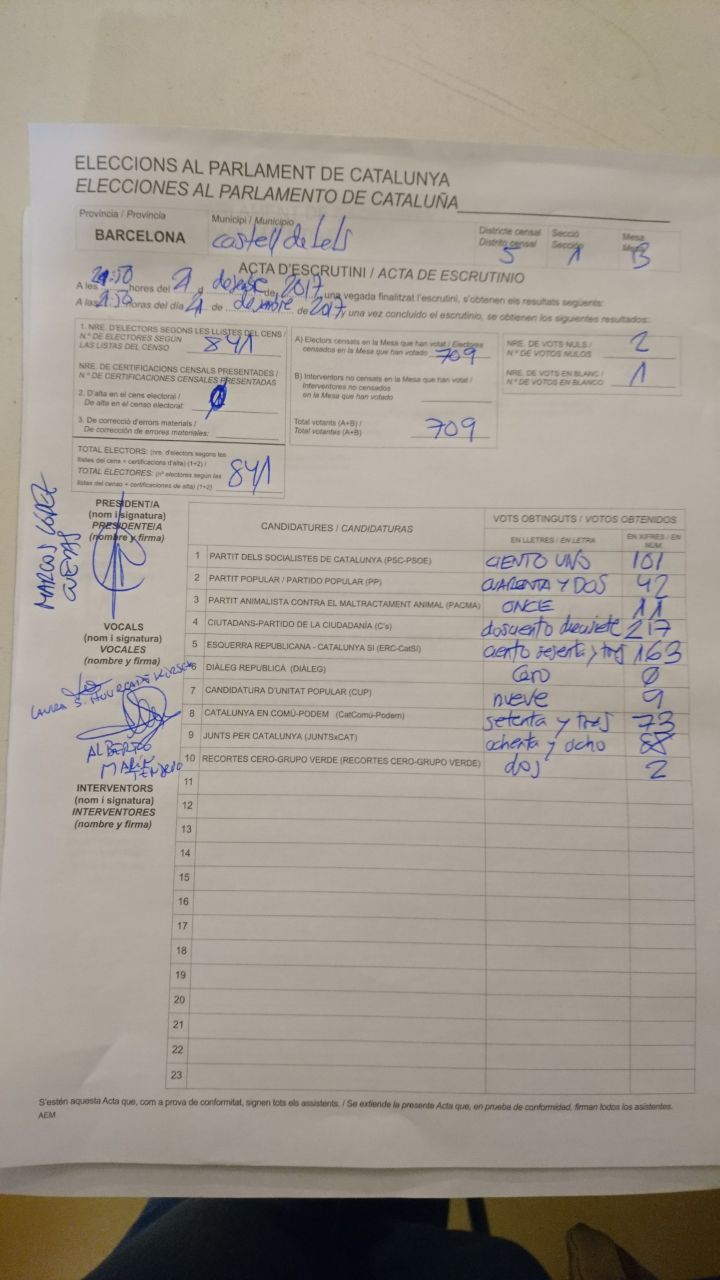 ELECCIONS AL PARLAMENT DE CATALUNYA
ELECCIONES AL PARLAMENTO DE CATALUÑA
Provincia / Provincia
BARCELONA
Municipi / Municipio
castelldefels
Districte censal
Distrito censal
5
Secció
Sección
1
Mesa
Mesa
B
ACTA D'ESCRUTINI / ACTA DE ESCRUTINIO
A les 21:50 hores del 21 d desembre de 2017, una vegada finalitzat l'escrutini, s'obtenen els resultats següents:
A las 21:50 horas del día 21 de diciembre de 2017 y una vez concluido el escrutinio, se obtienen los siguientes resultados:
1. NRE. D'ELECTORS SEGONS LES LLISTES DEL CENS /
N.º DE ELECTORES SEGÚN
LAS LISTAS DEL CENSO
841
NRE. DE CERTIFICACIONS CENSALS PRESENTADES /
N.º DE CERTIFICACIONES CENSALES PRESENTADAS
2. D'alta en el cens electoral /
De alta en el censo electoral:
0
3. De correcció d'errors materials /
De corrección de errores materiales:
TOTAL ELECTORS: (nre. d'electors segons les
llistes del cens + certificacions d'alta) (1+2) /
TOTAL ELECTORES: (nº electores según las
listas del censo + certificaciones de alta) (1+2)
841
A) Electors censats en la Mesa que han votat / Electores
censados en la Mesa que han votado
709
B) Interventors no censats en la Mesa que han votat /
Interventores no censados
en la Mesa que han votado
Total votants (A+B) /
Total votantes (A+B)
709
NRE. DE VOTS NULS /
N.º DE VOTOS NULOS
2
NRE. DE VOTS EN BLANC /
N.º DE VOTOS EN BLANCO
1
PRESIDENT/A
(nom i signatura)
PRESIDENTE/A
(nombre y firma)
MARCOS LOPEZ
CUEVAS
VOCALS
(nom i signatura)
VOCALES
(nombre y firma)
LAURA S.
ALBERTO
MARÍN
INTERVENTORS
(nom i signatura)
INTERVENTORES
(nombre y firma)
CANDIDATURES / CANDIDATURAS
VOTS OBTINGUTS / VOTOS OBTENIDOS
EN LLETRES / EN LETRA
EN XIFRES / EN NÚM.
1 PARTIT DELS SOCIALISTES DE CATALUNYA (PSC-PSOE) CIENTO UNO 101
2 PARTIT POPULAR / PARTIDO POPULAR (PP) CUARENTA Y DOS 42
3 PARTIT ANIMALISTA CONTRA EL MALTRACTAMENT ANIMAL (PACMA) ONCE 11
4 CIUTADANS-PARTIDO DE LA CIUDADANÍA (C's) doscientos diecisiete 217
5 ESQUERRA REPUBLICANA - CATALUNYA SI (ERC-CatSí) ciento sesenta y tres 163
6 DIÀLEG REPUBLICÀ (DIÀLEG) Cero 0
7 CANDIDATURA D'UNITAT POPULAR (CUP) nueve 9
8 CATALUNYA EN COMÚ-PODEM (CatComú-Podem) setenta y tres 73
9 JUNTS PER CATALUNYA (JUNTSxCAT) ochenta y ocho 88
10 RECORTES CERO-GRUPO VERDE (RECORTES CERO-GRUPO VERDE) dos 2
11
12
13
14
15
16
17
18
19
20
21
22
23
S'estén aquesta Acta que, com a prova de conformitat, signen tots els assistents. / Se extiende la presente Acta que, en prueba de conformidad, firman todos los asistentes.
AEM